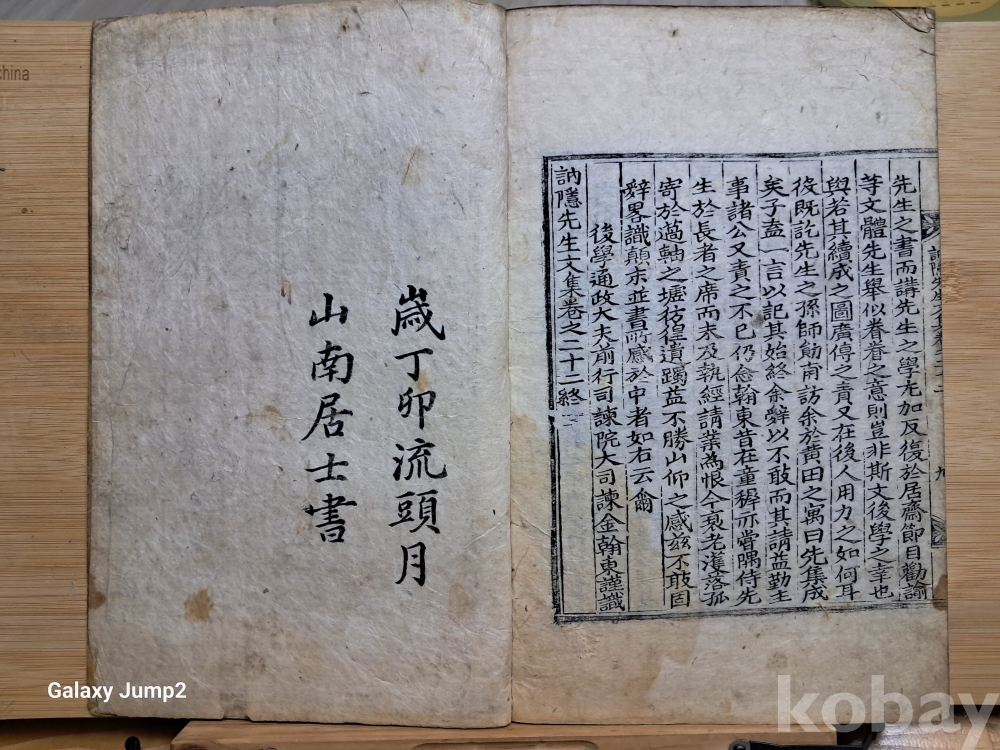 先生之書而講先生之學尤加反復於居齋節目勸諭
等文體先生舉似眷眷之意則豈非斯文後學之幸也
與若其續成之圖廣傳之責又在後人用力之如何耳
後既訖先生之孫師勛甫訪余於黃田之寓曰先集成
矣子盍一言以記其始終余辭以不敢而其請益勤坐
事諸公又責之不已仍念翰東昔在童穉亦嘗隅侍先
生於長者之席而未及執經請業為恨今衰老濩落孤
寄於薖軸之壚彷徨遺躅益不勝山仰之感玆不敢固
辭畧識顛末並書所感於中者如右云爾
後學通政大夫前行司諫院大司諫金翰東謹識
訥隱先生文集卷之二十二終
歲丁卯流頭月
山南居士書
china
Galaxy Jump2
kobay